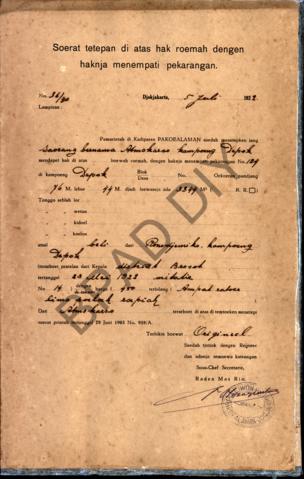 Soerat tetepan di atas hak roemah dengen
haknja menempati pekarangan.
No. 36/30 Djokjakarta, 5 Juli 1932
Lampiran :
Pamarentah di Kadipaten PAKOEALAMAN soedah menetepken jang
saorang bernama Atmokarso kampoeng Depok
mendapet hak di atas boewah roemah, dengen haknja menempatin pekarangan No. 129
di kampoeng Depok Blok No. Oekoeran pandjang
76 M. lebar 44 M. djadi loewasnja ada 3344 M² R. R.
Tangga sebelah lor
wetan
kidoel
koelon
asal beli dari kampoeng
Depok
toemboesan pratelan dari Kapala district Brosot
tertanggal 23 Mei 1923
No. 14 harga f 450 terbilang : Ampat ratoes
lima poeloeh roepiah
Dan Atmokarso terseboet di atas di temtoeken menetepi
soerat printah tanggal 19 Juni 1903 No. 959/A.
Terbikin boewat : Origineel
Soedah tjotjok dengen Register
dan adanja semoewa katrangan
Sous-Chef Secretarie,
Raden Mas Rio
BPAD DIY